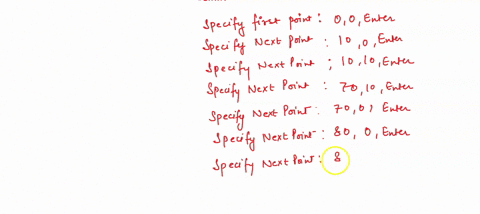 Specify first point: 0,0, Enter
Specify Next Point : 10,0, Enter
Specify Next Point ; 10,10, Enter
Specify Next Point : 70,10, Enter
Specify Next Point: 70,0; Enter
Specify Next Point: 80, 0, Enter
Specify Next Point: 8